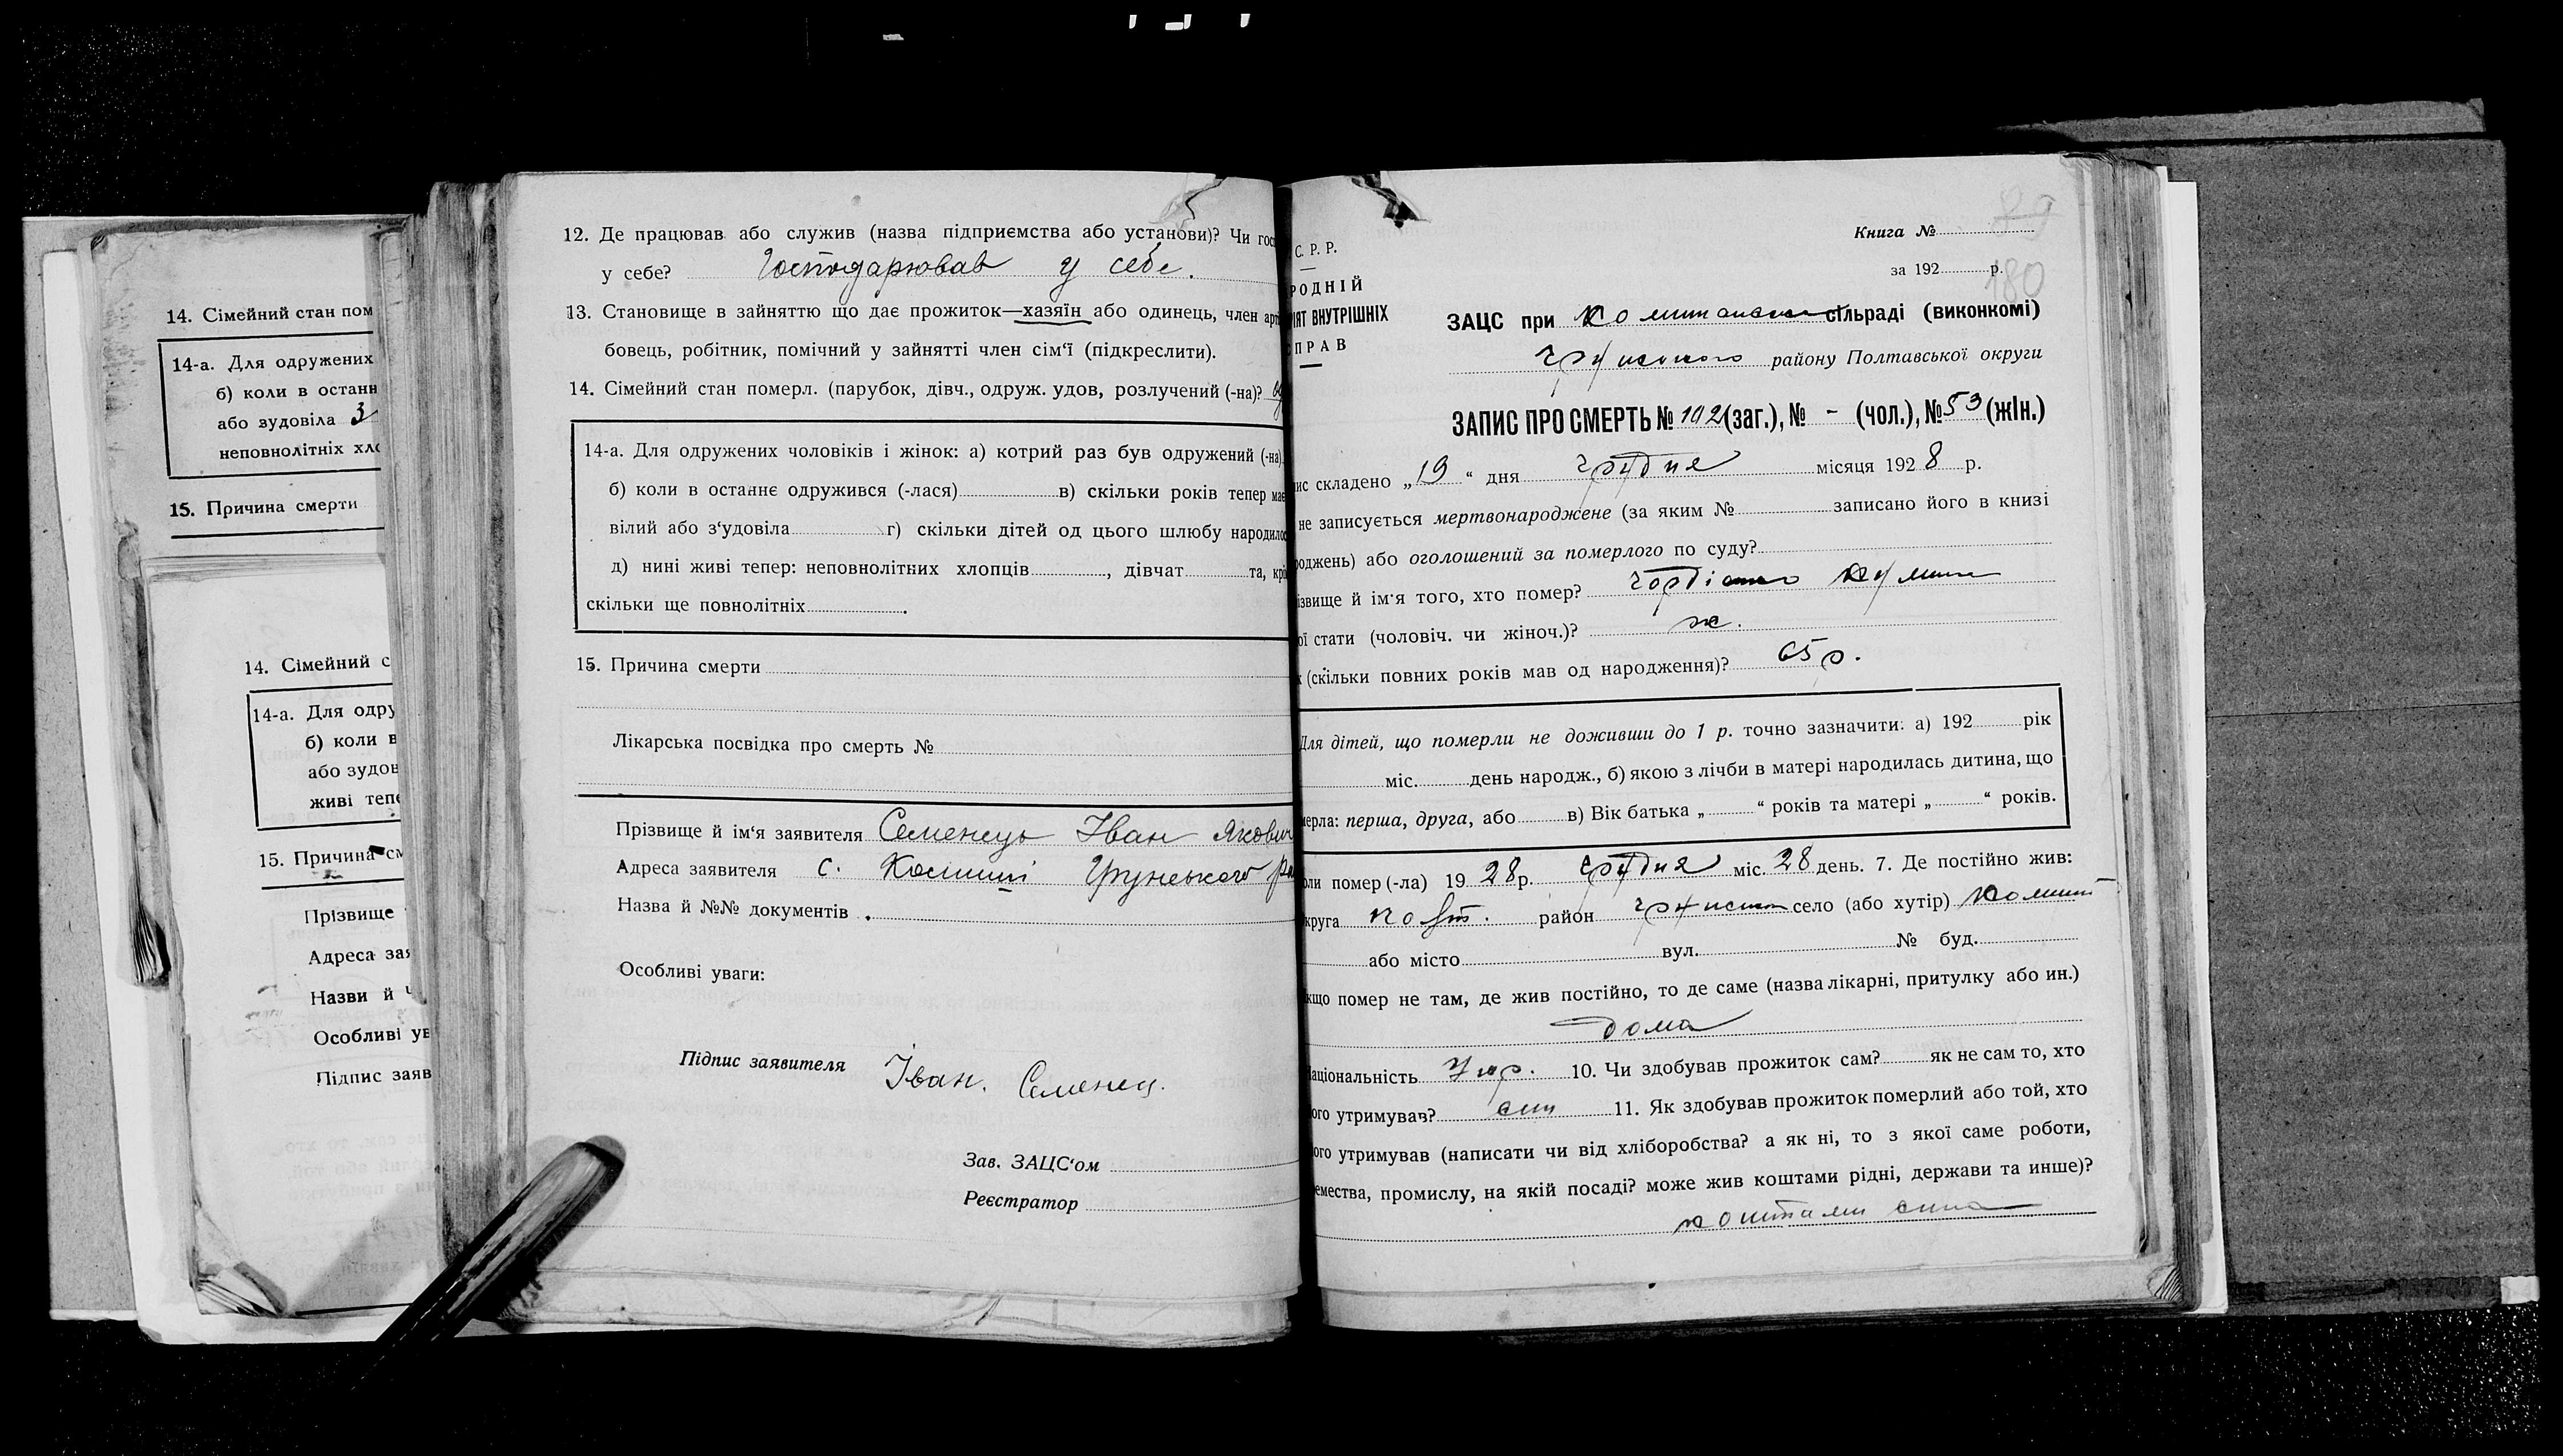 14. Сімейний стан пом
14-а. Для одружених
б) коли в останн
або зудовіла З
неповнолітніх хло
15. Причина смерти
14. Сімейний с
14-а. Для одру
б) коли в
або зудов
живі тепе
15. Причина см
Прізвище
Адреса зая
Назви й
Особливі ув
Підпис заяв
12. Де працював або служив (назва підприємства або установи)? Чи гос
у себе? Господарював у себе.
13. Становище в зайняттю що дає прожиток—хазяїн або одинець, член арт
бовець, робітник, помічний у зайнятті член сім'ї (підкреслити).
14. Сімейний стан померл. (парубок, дівч., одруж. удов, розлучений (-на)?
14-а. Для одружених чоловіків і жінок: а) котрий раз був одружений (-на)
б) коли в останнє одружився (-лася) в) скільки років тепер має
вілий або з'удовіла г) скільки дітей од цього шлюбу народилос
д) нині живі тепер: неповнолітних хлопців, дівчат та, крі
скільки ще повнолітніх.
15. Причина смерти
Лікарська посвідка про смерть №
Прізвище й ім'я заявителя Семенець Іван Якович
Адреса заявителя с. Комиші Грунського ра
Назва й №№ документів
Особливі уваги:
Підпис заявителя Іван. Семенец.
Зав. ЗАЦС'ом
Реєстратор
С. Р. Р.
РОДНІЙ
ІЯТ ВНУТРІШНІХ
ПРАВ
Книга №
за 192 р.
180
ЗАЦС при сільраді (виконкомі)
Грунського району Полтавської округи
ЗАПИС ПРО СМЕРТЬ № 102 (заг.), № - (чол.), № 53 (жін.)
ис складено „19“ дня грудня місяця 1928 р.
не записується мертвонароджене (за яким № записано його в книзі
роджень) або оголошений за померлого по суду?
ізвище й ім'я того, хто помер?
ої стати (чоловіч. чи жіноч.)? ж.
к (скільки повних років мав од народження)? 65 р.
Для дітей, що померли не доживши до 1 р. точно зазначити: а) 192 рік
міс. день народж., б) якою з лічби в матері народилась дитина, що
мерла: перша, друга, або в) Вік батька „ “ років та матері „ “ років.
оли помер (-ла) 1928 р. грудня міс. 28 день. 7. Де постійно жив:
круга Полт. район Грунськ село (або хутір) Комиші
або місто вул. № буд.
кщо помер не там, де жив постійно, то де саме (назва лікарні, притулку або ин.)
дома
аціональність Укр. 10. Чи здобував прожиток сам? як не сам то, хто
ого утримував? син 11. Як здобував прожиток померлий або той, хто
ого утримував (написати чи від хліборобства? а як ні, то з якої саме роботи,
емества, промислу, на якій посаді? може жив коштами рідні, держави та инше)?
коштами сина